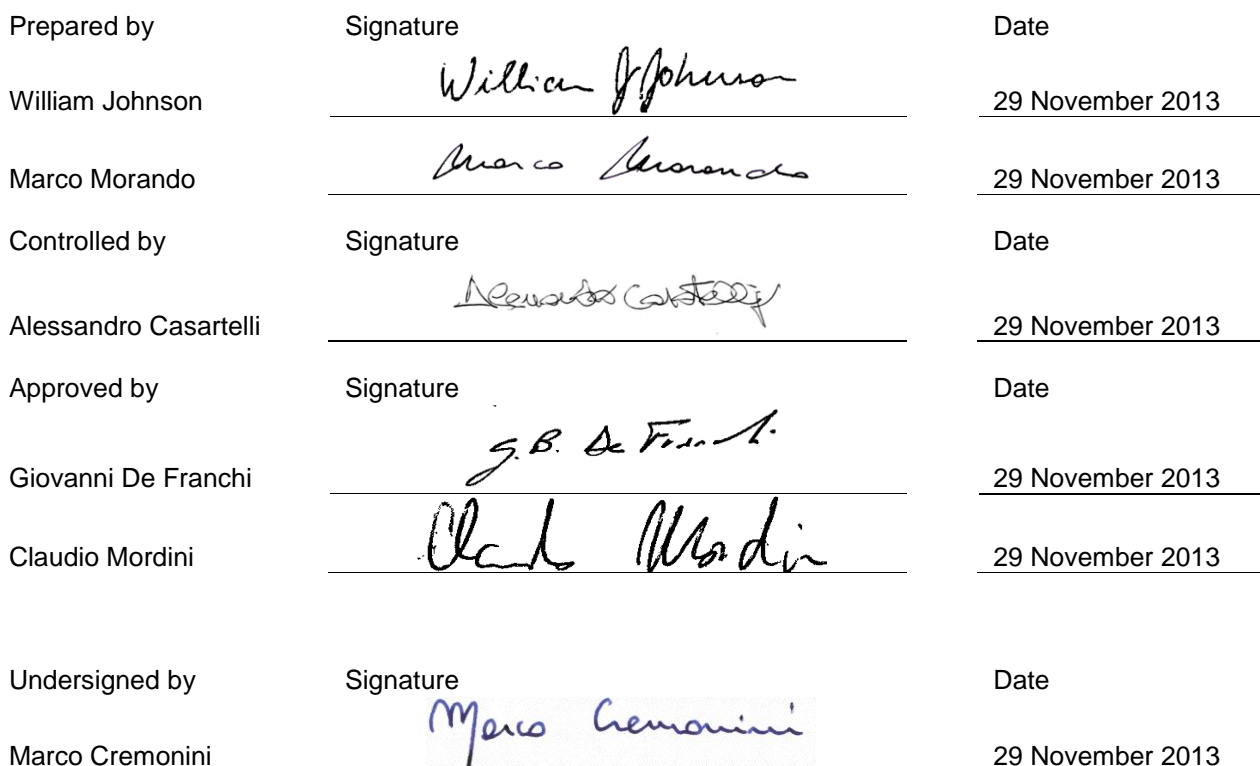 Prepared by Signature Date
William J Johnson
William Johnson 29 November 2013
Marco Morando
Marco Morando 29 November 2013
Controlled by Signature Date
Alessandro Casartelli
Alessandro Casartelli 29 November 2013
Approved by Signature Date
G.B. De Franchi
Giovanni De Franchi 29 November 2013
Claudio Mordini
Claudio Mordini 29 November 2013
Undersigned by Signature Date
Marco Cremonini
Marco Cremonini 29 November 2013